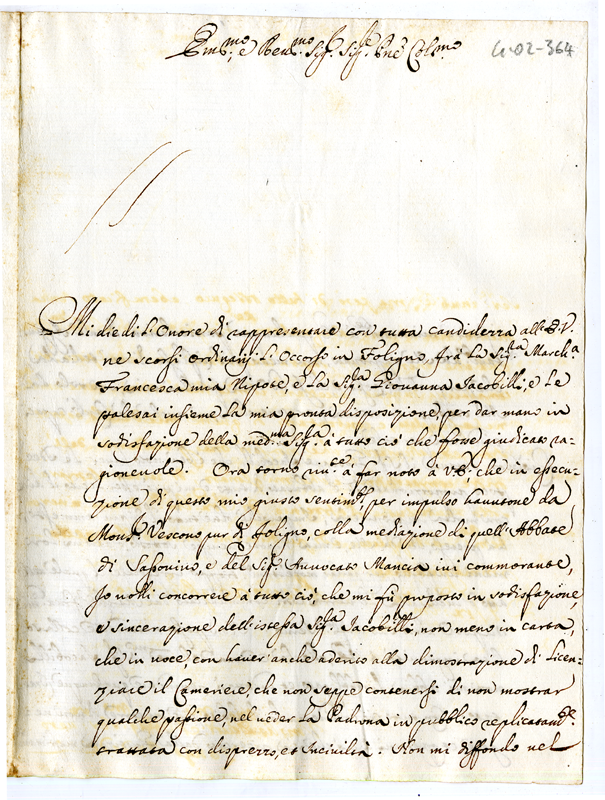 Em.mo, e Reu.mo Sig.r Sig.r P.rone Col.mo
4-02-364
Mi diedi L'Onore di rappresentare con tutta candidezza all'E.V.
ne scorsi ordinarij L'Occorso in Foligno, frà La Sig.ra March.a
Francesca mia Nipote, e La Sig.ra Giouanna Iacobilli, e Le
palesai insieme La mia pronta disposizione, per dar mano in
sodisfazione della med.ma Sig.ra à tutto ciò che fosse giudicato ra-
gioneuole. Ora torno riu.te à far noto à V.E., che in essecu-
zione di questo mio giusto sentim.to, per impulso hauutone da
Mons.r Vescouo pur di Foligno, colla mediazione di quell'Abbate
di Sassouiuo, e del Sig.r Auuocato Mancia iui commorante,
Io volli concorrere à tutto ciò, che mi fù proposto in sodisfazione,
e sincerazione dell'istessa Sig.ra Iacobilli, non meno in carta,
che in voce, con hauer'anche aderito alla dimostrazione di Licen-
ziare il Cameriere, che non seppe contenersi di non mostrar
qualche passione, nel veder La Padrona in pubblico replicatam.te
trattata con disprezzo, et Inciuiltà. Non mi diffondo nel